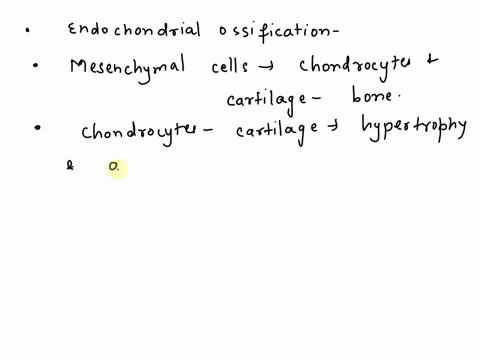 • Endochondrial ossification-
• Mesenchymal cells → chondrocytes +
cartilage - bone.
• Chondrocytes - cartilage → hypertrophy
& a